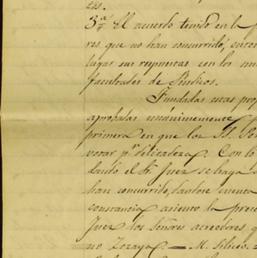 3ª El acuerdo tenido en la p
res que no han concurrido, 
lugar sus respuestas con los
facultades de Síndicos.
Fundadas estas pro
aprobadas unánimemente
primera en que los S.S.
votar pr delicadeza. Con lo
dando el Sr Juez se haga
han concurrido, dándose cuenta
constancia asiento la pres
Juez dos Señores acreedores q
no Zozaya — M. Silicio.